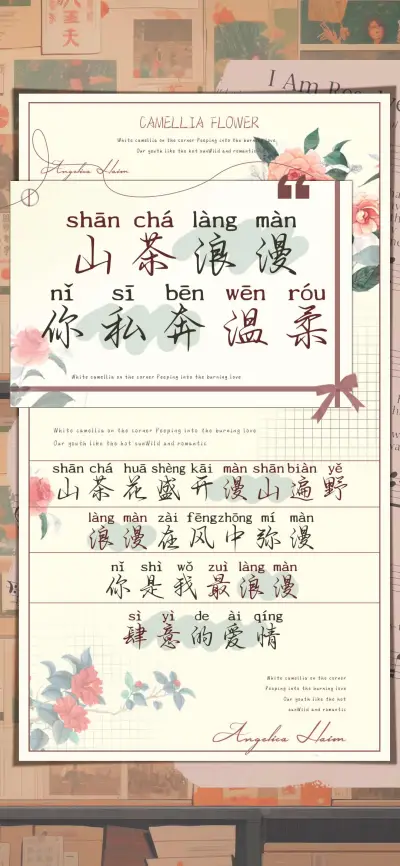 I Am Ro
CAMELLIA FLOWER
White camellia on the corner Peeping into the burning love
Our youth like the hot sunWild and romantic
Angelica Haim
shān chá làng màn
山茶浪漫
nǐ sī bēn wēn róu
你私奔温柔
White camellia on the corner Peeping into the burning love
White camellia on the corner Peeping into the burning love
Our youth like the hot sunWild and romantic
shān chá huā shèng kāi màn shān biàn yě
山茶花盛开漫山遍野
làng màn zài fēng zhōng mí màn
浪漫在风中弥漫
nǐ shì wǒ zuì làng màn
你是我最浪漫
sì yì de ài qíng
肆意的爱情
White camellia on the corner
Peeping into the burning love
Our youth like the hot
sunWild and romantic
Angelica Haim